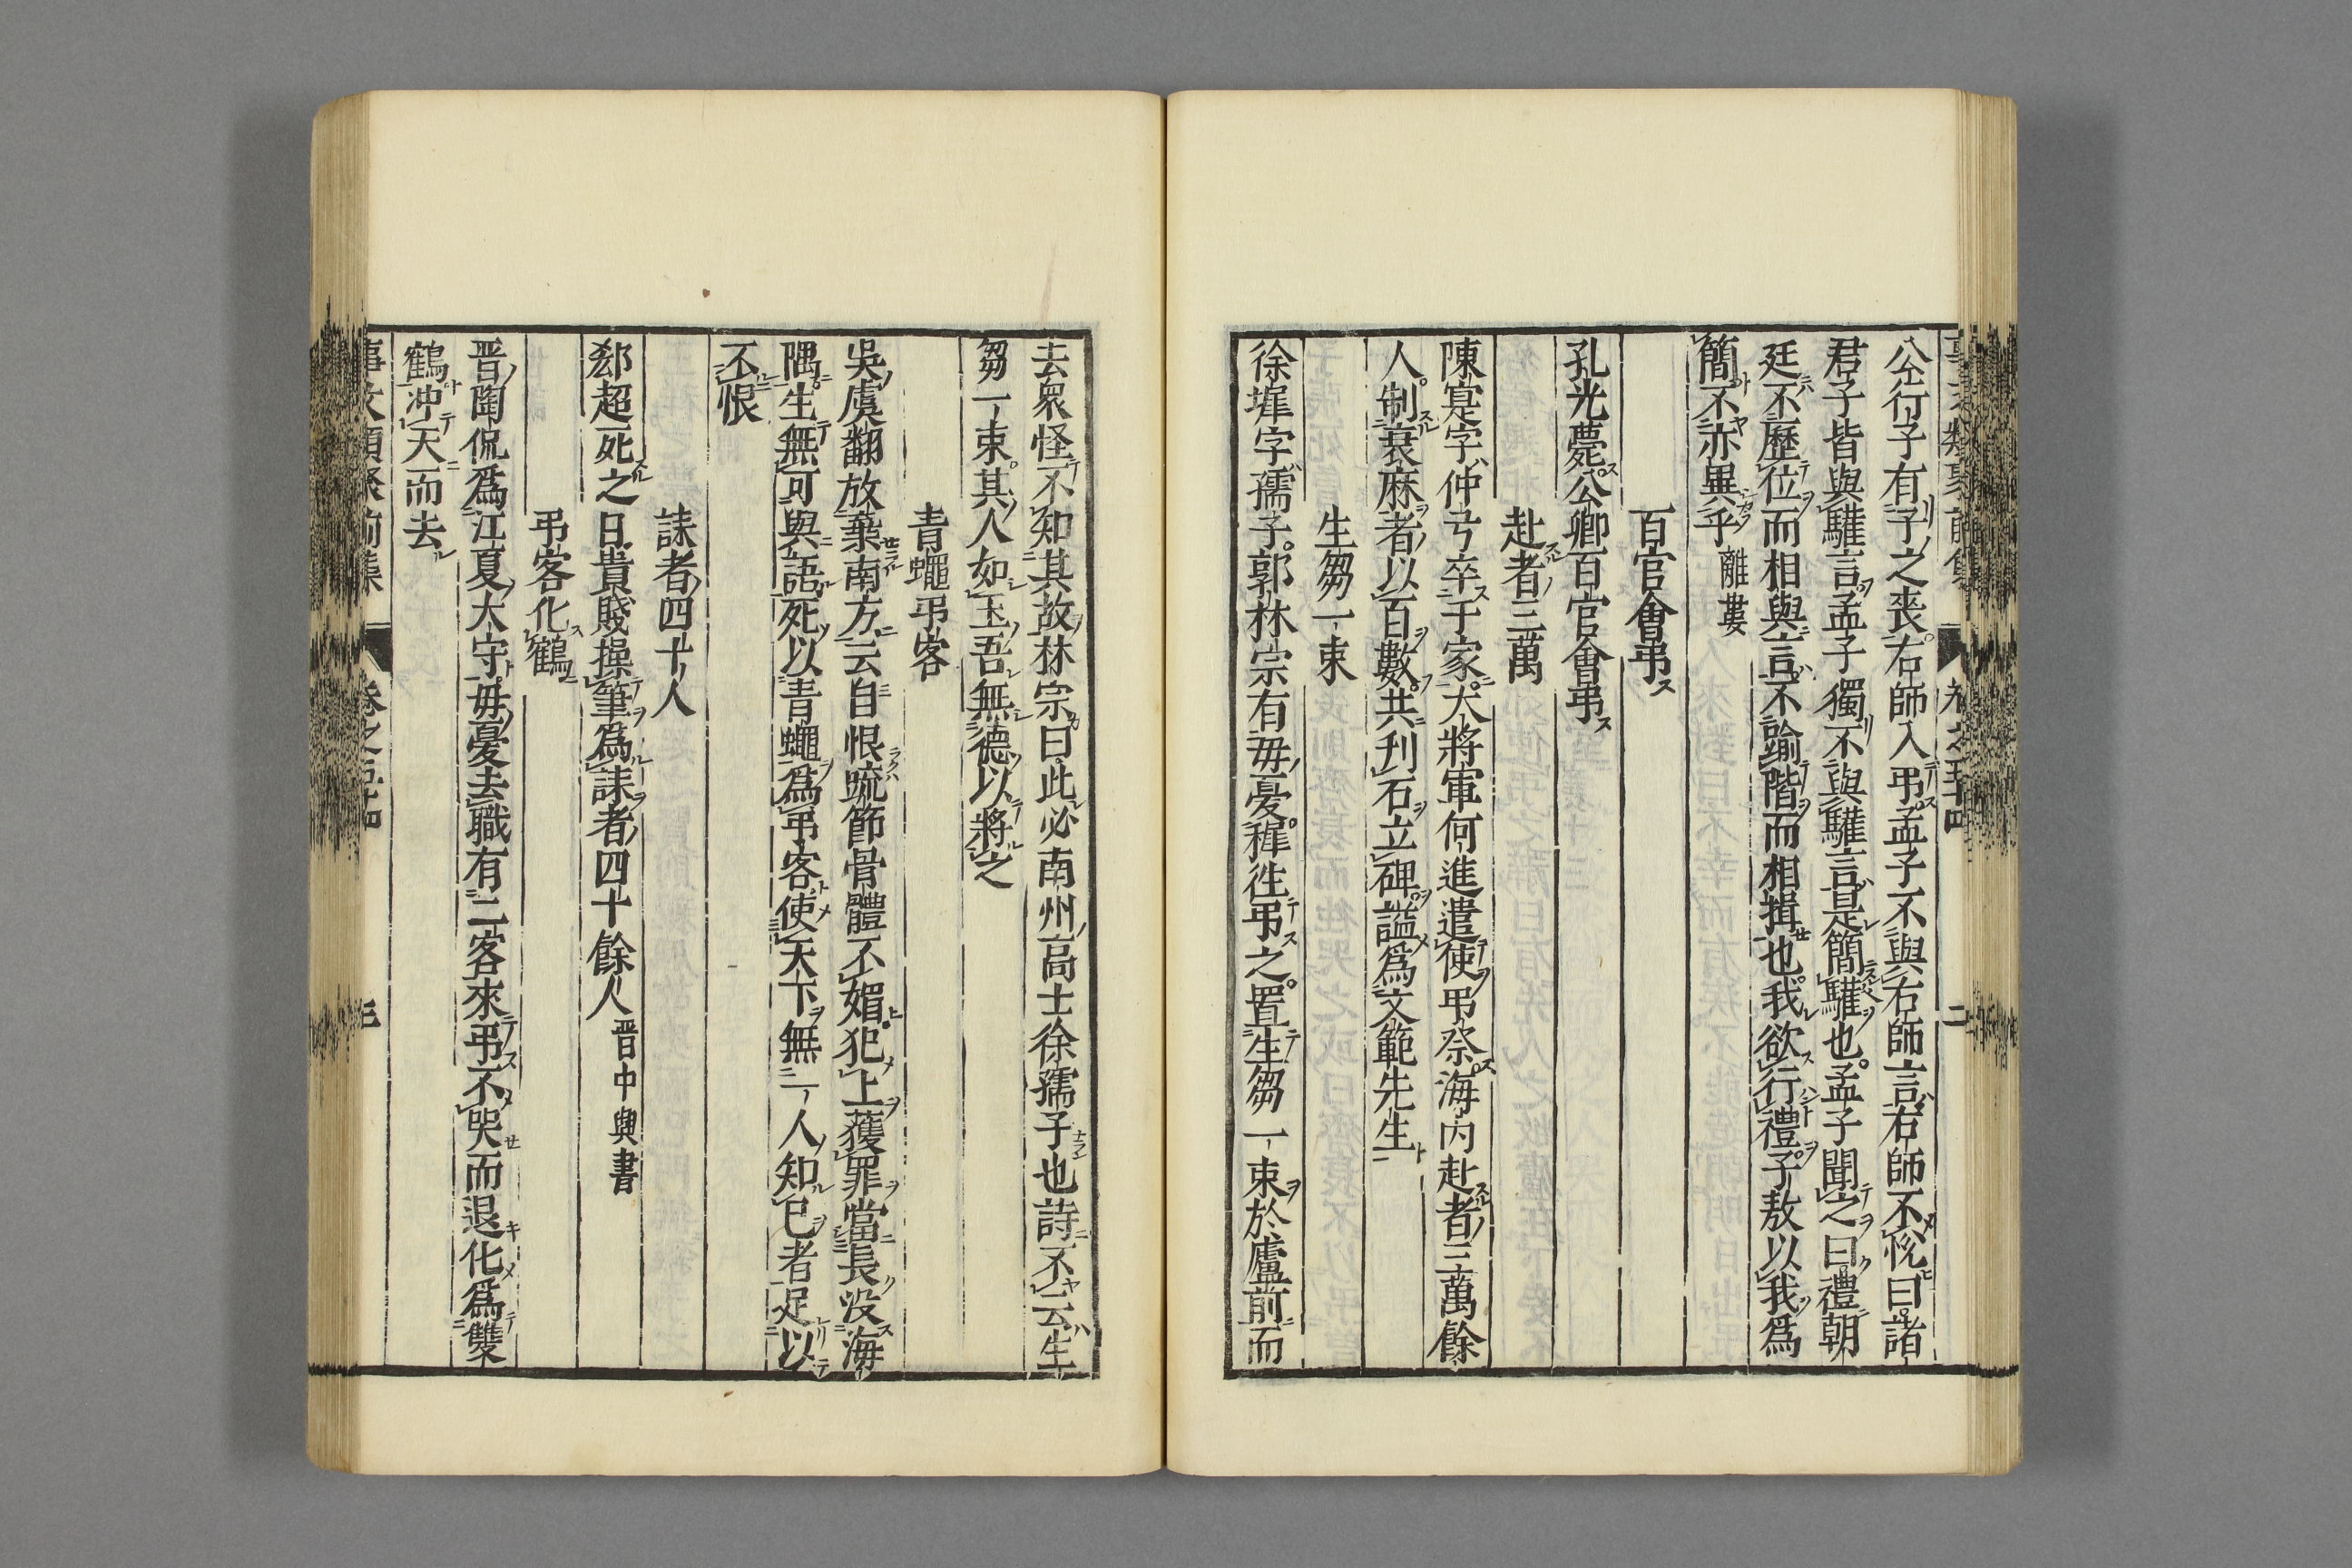 公行子有子之喪右師入弔孟子不與右師言右師不悅曰諸
君子皆與驩言孟子獨不與驩言是簡驩也孟子聞之曰禮朝
廷不歷位而相與言不踰階而相揖也我欲行禮子敖以我爲
簡不亦異乎 離婁
百官會弔
孔光薨公卿百官會弔
赴者三萬
陳寔字仲弓卒于家大將軍何進遣使弔祭海内赴者三萬餘
人制衰麻者以百數共刋石立碑謚爲文範先生
生芻一束
徐穉字孺子郭林宗有毋憂穉徃弔之置生芻一束於廬前而
去衆怪不知其故林宗曰此必南州高士徐孺子也詩不云生
芻一束其人如玉吾無德以將之
青蠅弔客
吳虞翻放棄南方云自恨疏節骨體不媚犯上獲罪當長没海
隅生無可與語死以青蠅爲弔客使天下無一人知已者足以
不恨
誄者四十人
郄超死之日貴賤操筆爲誄者四十餘人 晋中興書
弔客化鶴
晋陶侃爲江夏太守毋憂去職有二客來弔不哭而退化爲雙
鶴冲天而去
事文類聚前集 卷之五十四 三